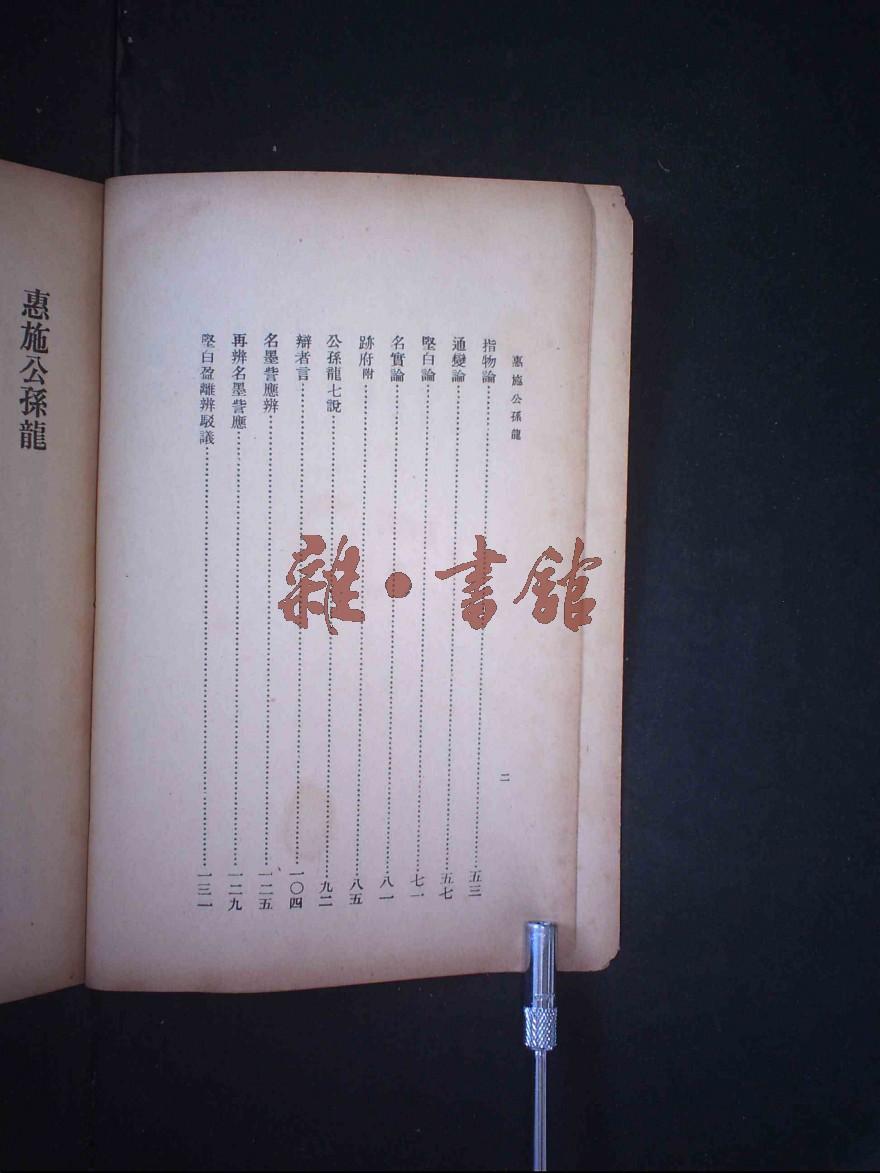 惠施公孫龍
二
指物論⋯⋯五三
通變論⋯⋯五七
堅白論⋯⋯七一
名實論⋯⋯八一
跡府附⋯⋯八五
公孫龍七說⋯⋯九二
辯者言⋯⋯一〇四
名墨訾應辨⋯⋯一二五
再辨名墨訾應⋯⋯一二九
堅白盈離辨駁議⋯⋯一三一
惠施公孫龍
雜·書館